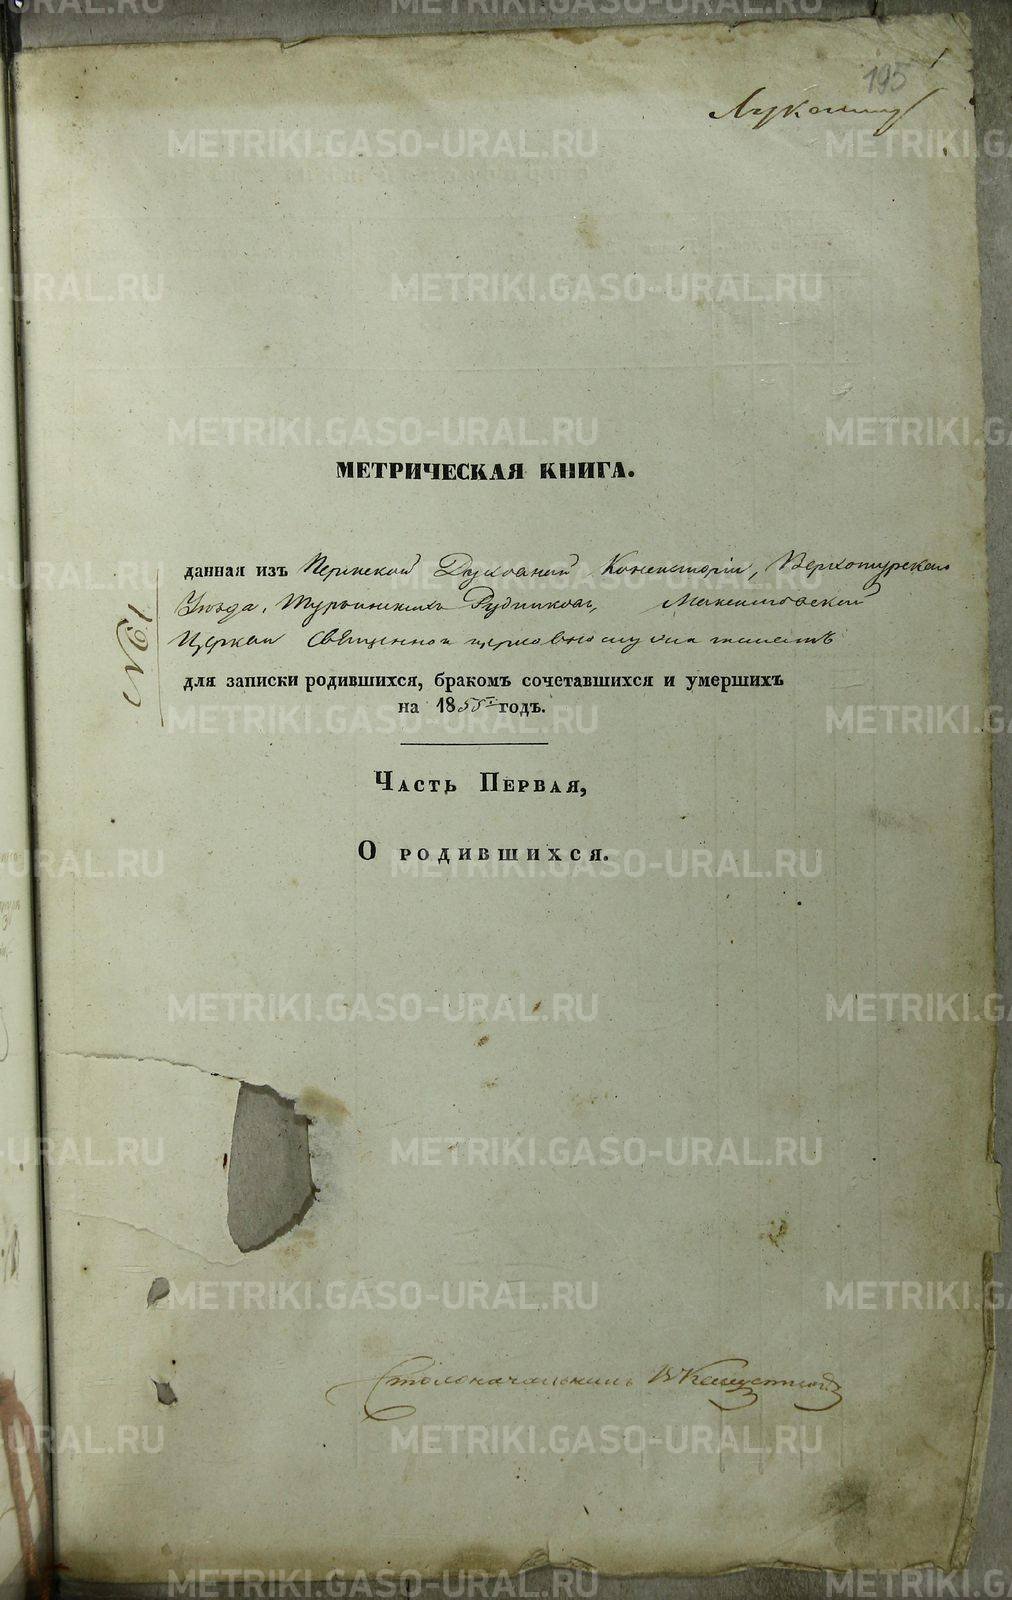 1
195
№ 61
МЕТРИЧЕСКАЯ КНИГА.
данная изъ Пермской Духовной Консисторіи, Верхотурскаго
Уѣзда, Турьинскихъ Рудниковъ, Максимовской
Церкви священно и церковнослужителямъ
для записки родившихся, бракомъ сочетавшихся и умершихъ
на 1855й годъ.
Часть Первая,
О родившихся.
Столоначальникъ
METRIKI.GASO-URAL.RU